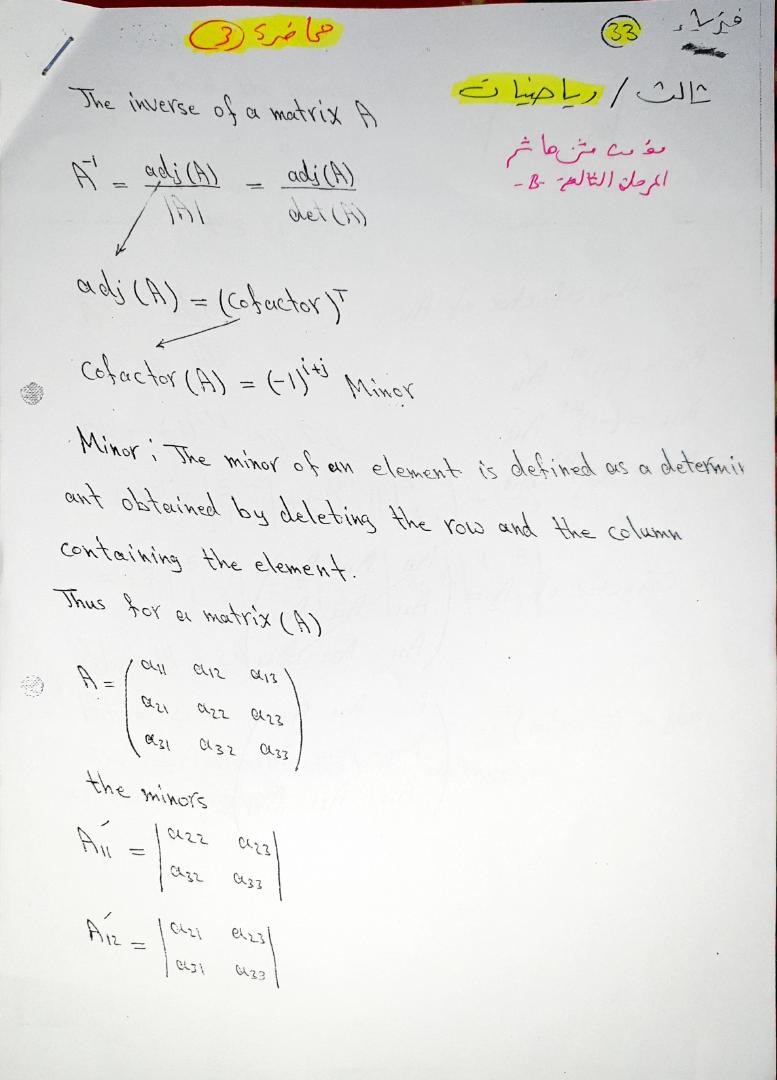 فيزياء
33
محاضرة (3)
ثالث / رياضيات
المرحلة الثالثة -B-
The inverse of a matrix A
A⁻¹ = adj(A) / |A| = adj(A) / det(A)
adj(A) = (cofactor)ᵀ
Cofactor(A) = (-1)ⁱ⁺ʲ Minor
Minor : The minor of an element is defined as a determin
ant obtained by deleting the row and the column
containing the element.
Thus for a matrix (A)
A = ( a11 a12 a13
a21 a22 a23
a31 a32 a33 )
the minors
A′11 = | a22 a23
a32 a33 |
A′12 = | a21 a23
a31 a33 |